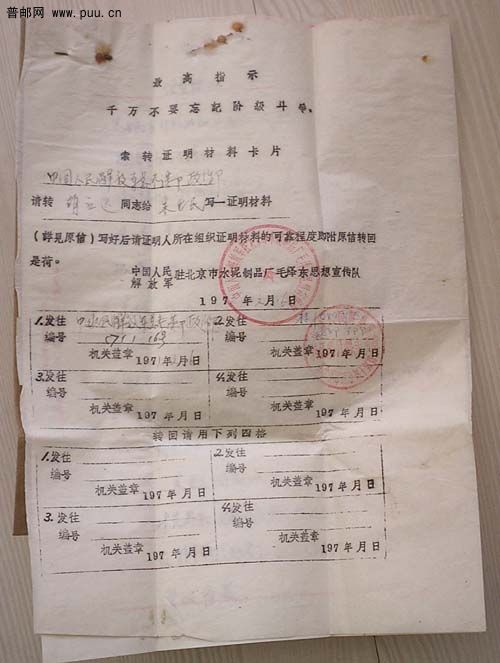 普邮网
www.puu.cn
最高指示
千万不要忘记阶级斗争.
索转证明材料卡片
中国人民解放军
请转 同志给 写一证明材料
(详见原信)写好后请证明人所在组织证明材料的可靠程度附原信转回
是荷。
中国人民解放军驻北京市水泥制品厂毛泽东思想宣传队
197 年 月 日
1.发往 2.发往
编号 编号
机关盖章 197 年 月 日 机关盖章 197 年 月 日
3.发往 4.发往
编号 编号
机关盖章 197 年 月 日 机关盖章 197 年 月 日
转回请用下列四格
1.发往 2.发往
编号 编号
机关盖章 197 年 月 日 机关盖章 197 年 月 日
3.发往 4.发往
编号 编号
机关盖章 197 年 月 日 机关盖章 197 年 月 日